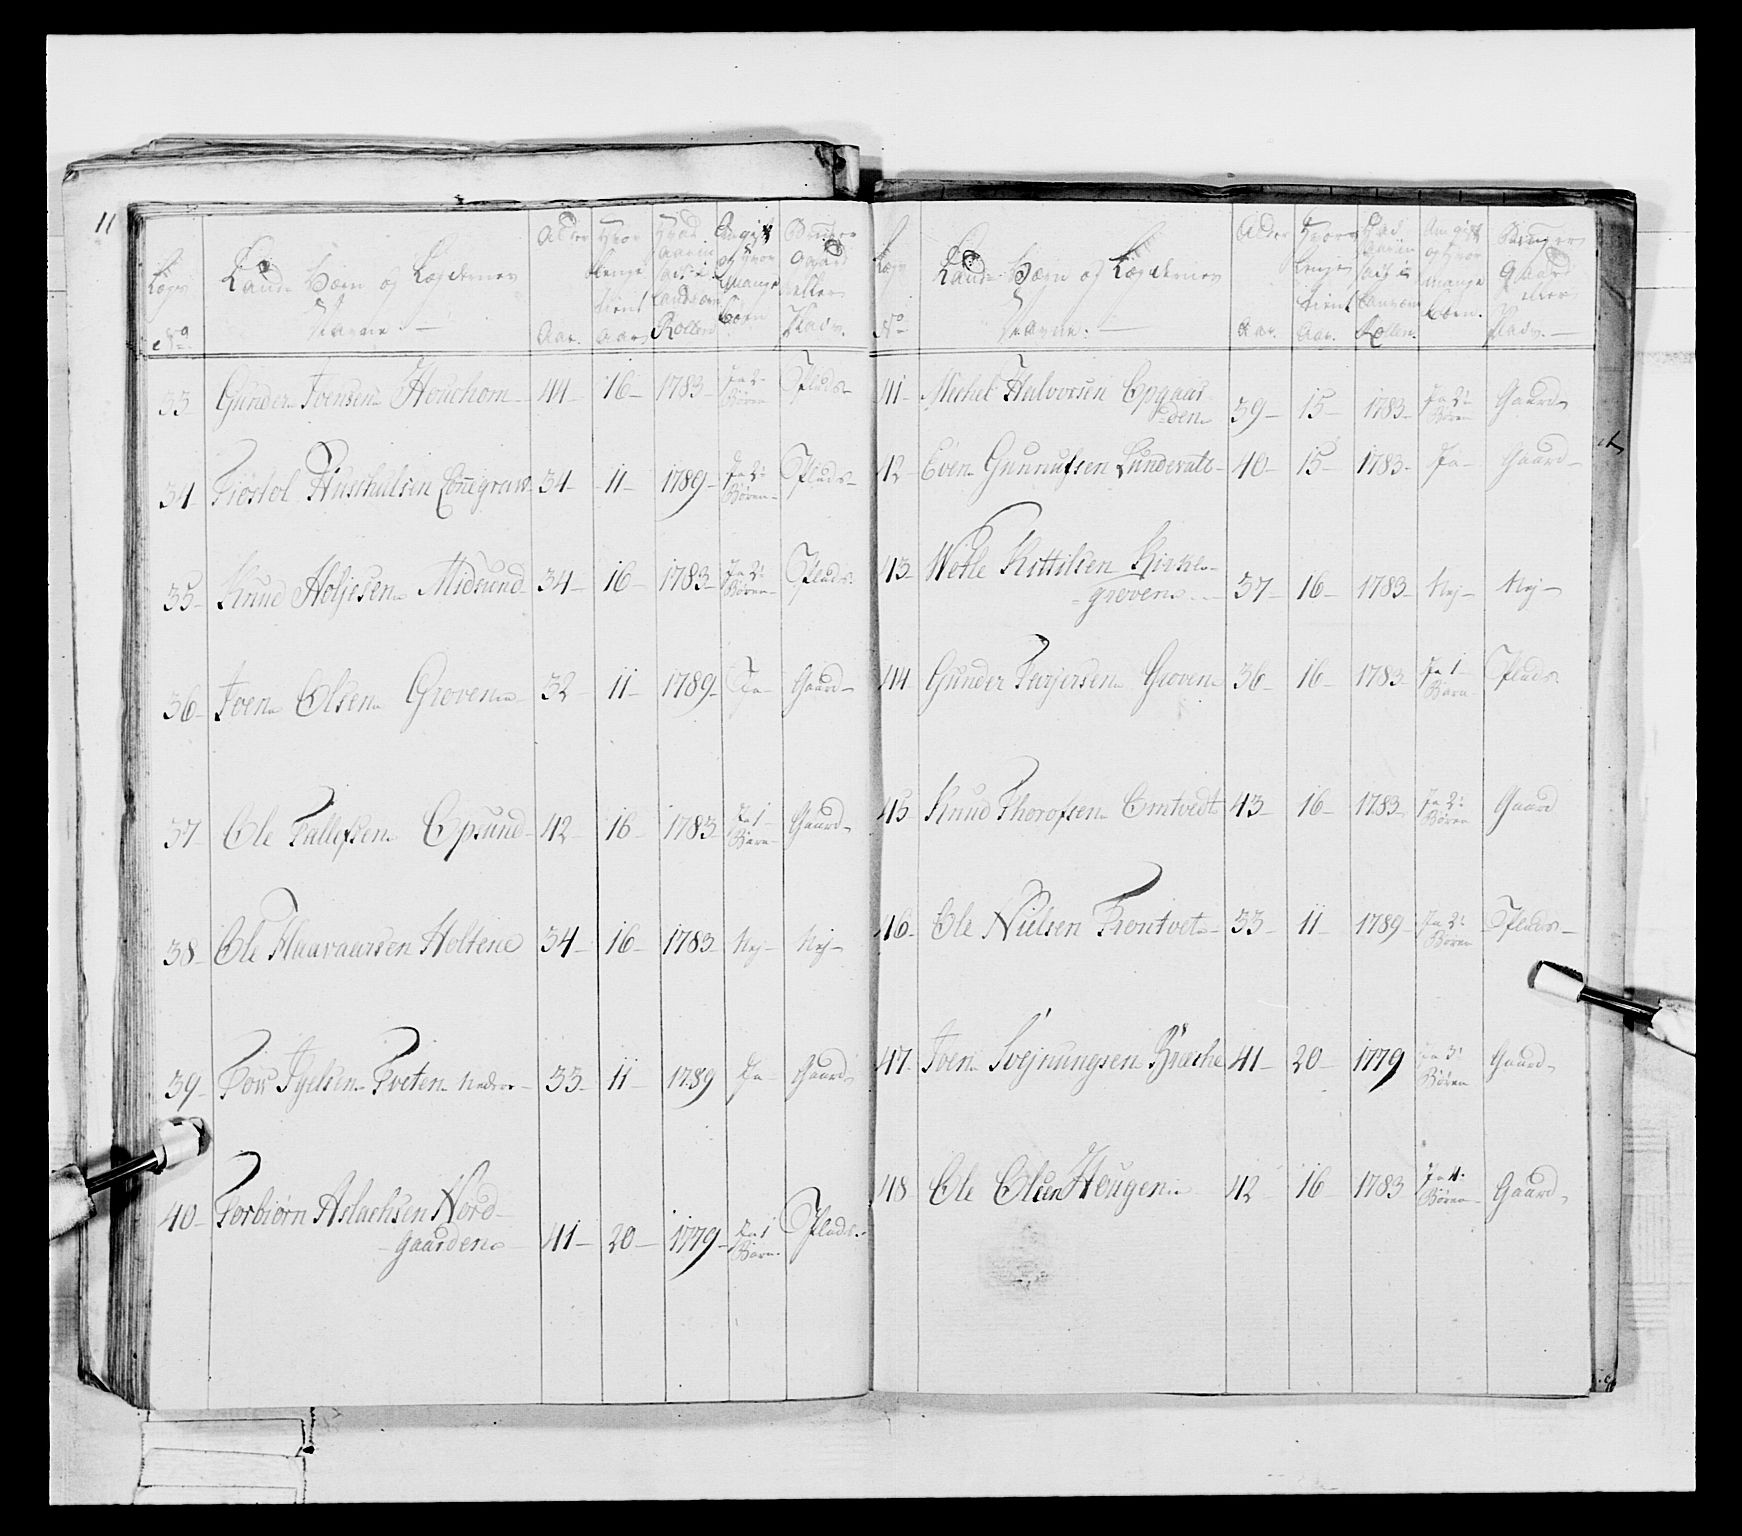 11
Lægs No
Land-Værn og Lægdernes Navne.
Alder Aar.
Hvor lenge tient Aar
Hvad Aar ind sadt i Landværn Rollen
Am gift og hvor mange Børn
Bruger Gaard eller Plads.
33 Gunder Iversen Houchom 44 16 1783 Ja 2 Børn Plads
34 34 11 1789 Ja 2 Børn Plads
35 Knud Holjesen Midsund 34 16 1783 Ja 2 Børn Plads
36 Iver Olsen Groven 32 11 1789 Ja Gaard
37 Ole Tallefsen Opsund 42 16 1783 Ja 1 Barn Gaard
38 Ole Haavaarsen Holtene 34 16 1783 Nej Nej
39 Tov Tveten Nedre 33 11 1789 Ja Gaard
40 Torbiørn Aslachsen Nord-
gaarden 41 20 1779 Ja 1 Barn Plads
Læg No
Land-Værn og Lægdernes Navne.
Alder Aar.
Hvor lenge tient Aar.
Hvad Aar ind sadt i Landværn Rollen
Am gift og hvor mange Børn.
Bruger Gaard eller Plads.
41 Michel Halvorsen Opgaar-
den 39 15 1783 Ja 2 Børn Gaard
42 Even Gunnufsen Lundevald 40 15 1783 Ja Gaard
43 Wetle Kittilsen Kirke-
groven 37 16 1783 Nej Nej
44 Gunder Terjersen Groven 36 16 1783 Ja 1 Barn Plads
45 Knud Thorofsen Omtvedt 43 16 1783 Ja 2 Børn Gaard
46 Ole Nielsen Trontvet 33 11 1789 Ja 2 Børn Plads
47 Iver Svejnungsen Bræche 41 20 1779 Ja 3 Børn Gaard
48 Ole Olsen Hougen 42 16 1783 Ja 4 Børn Gaard